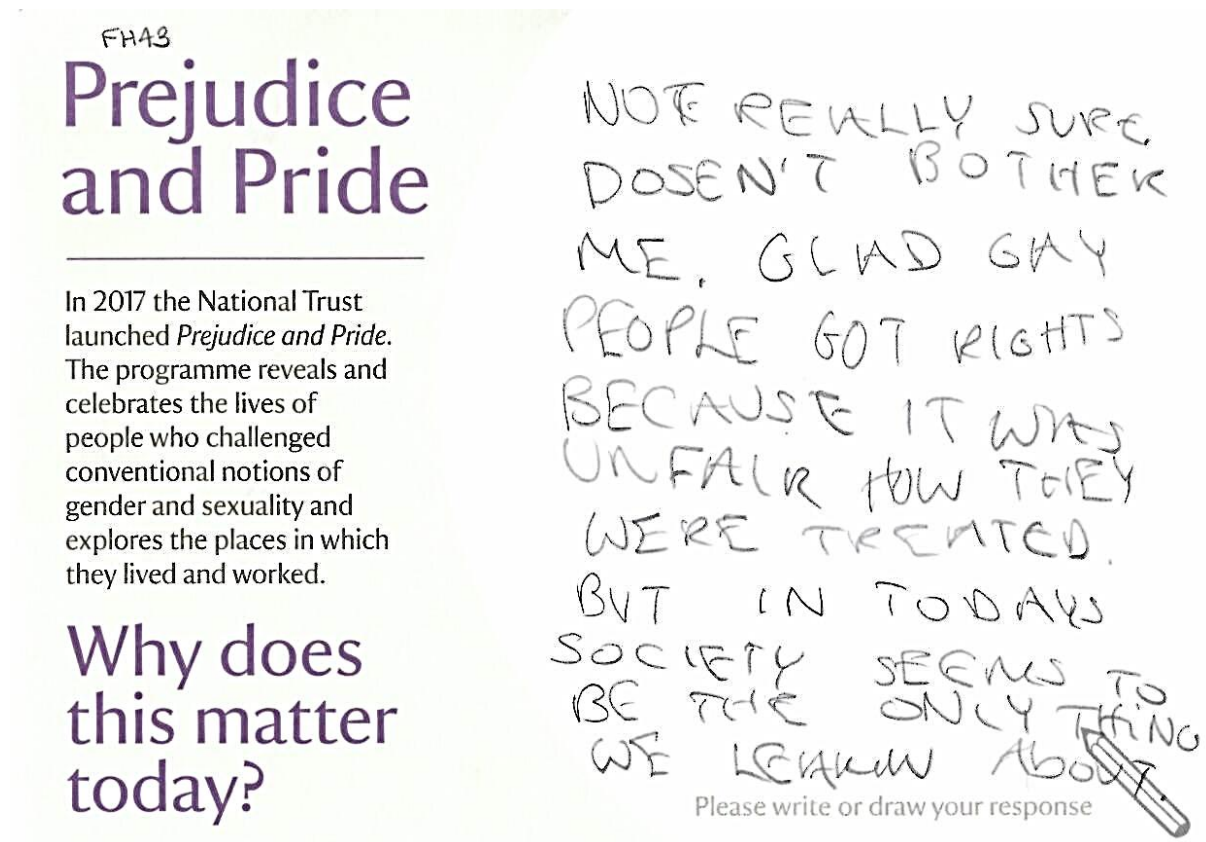 FH43
Prejudice
and Pride
In 2017 the National Trust
launched Prejudice and Pride.
The programme reveals and
celebrates the lives of
people who challenged
conventional notions of
gender and sexuality and
explores the places in which
they lived and worked.
Why does
this matter
today?
NOT REALLY SURE.
DOSEN'T BOTHER
ME. GLAD GAY
PEOPLE GOT RIGHTS
BECAUSE IT WAS
UNFAIR HOW THEY
WERE TREATED.
BUT IN TODAYS
SOCIETY SEEMS TO
BE THE ONLY THING
WE ABOUT.
Please write or draw your response